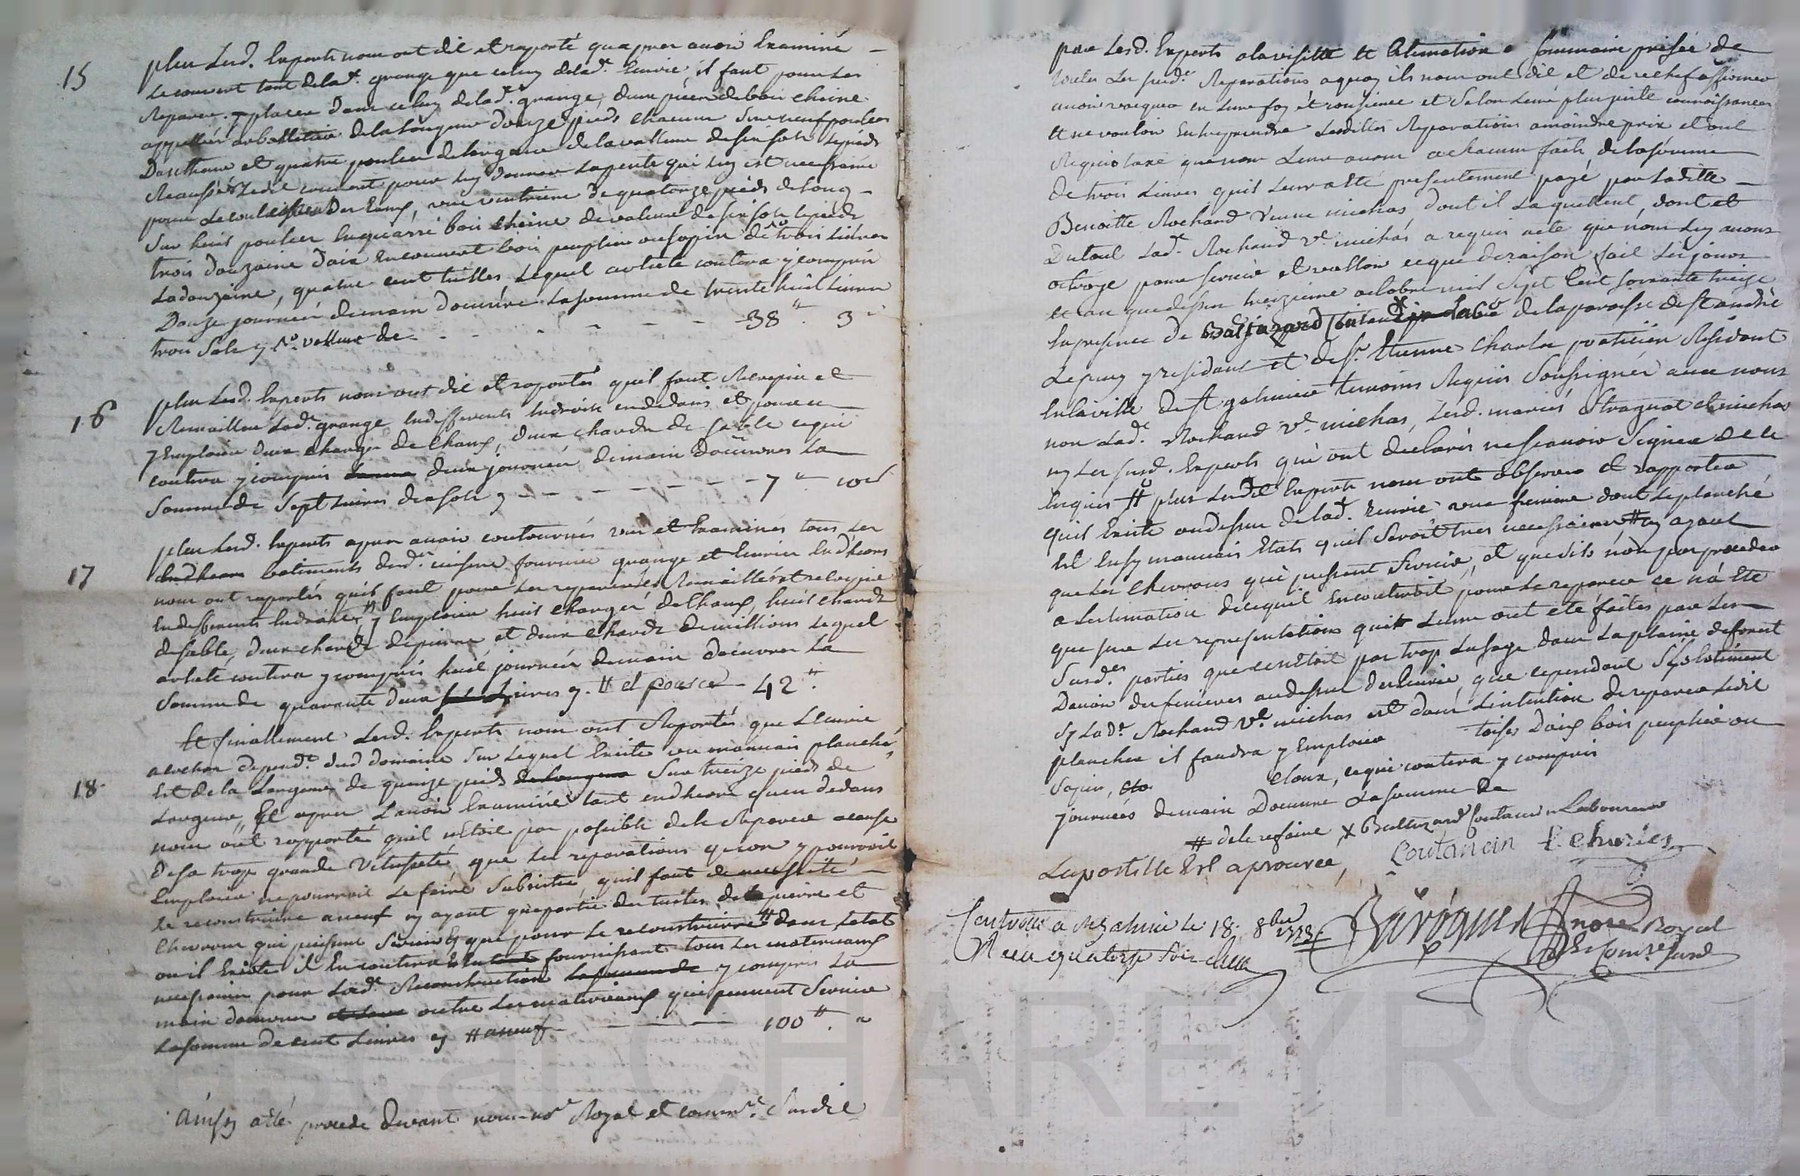 15
plus Lesd. Experts nous ont dit et raporté qu'apres avoir Examiné
le couvert tant de lad. grange que celuy de lad. Ecurie il faut pour les
Reparer y placer dans celuy de lad. grange, deux pieces de bois chesne
de la longueur d'onze pieds chacune sur neuf pouces
et quatre pouces de largeur de la valleur de six sols le pied
led. couvert pour luy donner la pente qui luy est necessaire
pour des Eaux, une de quatorze pieds de long
sur huit pouces En quarré bois chesne de valeur de six sols le pied
trois douzaine d'aix En couvert bois peuplier ou sapin de trois livres
La douzaine, quatre cent tuilles Lequel article coutera y compris
Douze journées de main d'oeuvre La somme de trente huit livres
trois sols cy 38 # 3 s
16
plus Lesd. Experts nous ont dit et raportés qu'il faut Recrepir et
Remailler Lad. grange En differents Endroits en dedans et pour ce
y Emploier deux charges de chaux, deux chards de sable ce qui
coutera y compris deux journées de main d'oeuvres La
somme de sept livres dix sols cy 7 # 10 s
17
plus Lesd. Experts apres avoir contournés vus et Examinés tous les
batiments dud. cuisine fourniere grange et Ecurie En dehors
nous ont raportés qu'il faut pour les reparer les Remailler et recrepir
En differents Endroits y Emploier huit charges de chaux, huit chards
de sable, deux chards de pierre et deux chards de millions Lequel
article coutera y compris huit journées de main d'oeuvres La
somme de quarante deux Livres cy 42 #
18
Et finallement Lesd. Experts nous ont Raportés que L'Ecurie
a cochon depend.t dud domaine sur Lequel Existe un mauvais planché
Est de la Longeur de quinze pieds sur treize pieds de
Largeur, Et apres L'avoir Examinée tant en dehors qu'en dedans
nous ont rapporté qu'il n'etoit pas possible de le Reparer a cause
De sa trop grande Vetusteté que les reparations qu'on y pourroit
Emploier ne pourroit le faire subsister, qu'il faut de necessité
le reconstruire a neuf n'y ayant que partie des tuiles de la pierre et
chevrons qui puissent Servir Et que pour le reconstruire dans l'etat
ou il Existe il En coutera fournissant tous les materieaux
necessaires pour Lad. Reconstruction y compris La
main d'oeuvre outre Les materieaux qui peuvent Servire
La somme de cent Livres cy # a neuf 100 # "
Ainsy a été procedé Devant nous no.re Royal et comm.re Susdit
par Lesd. Experts a la visitte et Estimation Sommaire prisée de
toutes Les susd. Reparations a quoy ils nous ont dit et de rechef affirmer
avoir vacquer en Leur foy et conscience et selon Leur plus juste connoissances
et ne vouloir Entreprendre Lesdittes Reparations a moindre prix et ont
Requis taxe que nous Leur avons a chacun fait de la somme
de trois Livres qu'il Leur a été presentement payé par Laditte
Benoitte Rochand Veuve michas, dont il La quittent, dont et
Du tout Lad. Rochand V.e michas a requis acte que nous luy avons
octroyé pour servir et valloir ce que de raison fait Les jours
et an que dessus treizieme octobre mil sept Cent soixante treize
En presence de Baltazard Coutanci* de la paroisse de St andré
Le puy y residant et de S.r Etienne Charles praticien Résident
En la ville de St galmier temoins Requis soussignés avec nous
non Lad. Rochand V.e michas, Lesd. mariés et michas
ny Les susd. Experts qui ont declarés ne scavoir signer de ce
Enquis # plus Lesd. Experts nous ont observer et rapporter
qu'il Existe au dessus de Lad. Ecurie une feniere dont Le planché
Est En sy mauvais Etats qu'il seroit tres necessaire # n'y ayant
que Les chevrons qui puissent servir, et que s'ils n'ont pas proceder
a L'estimation de ce qu'il En couteroit pour Le reparer ce n'a Eté
que sur Les representations qui Leur ont eté faites par Les
Susd. parties que ce n'etoit pas trop L'usage dans La plaine de forest
D'avoir des fenieres au dessus des Ecuries, que cependant
sy Lad. Rochand V.e michas est dans L'intention de reparer Ledit
plancher il faudra y Emploier toises d'aix bois peuplier ou
sapin, cloux, ce qui coutera y compris
journées de main d'oeuvre La somme de
# de le refaire X Baltazard Coutancin Laboureur
L'apostille Est aprouvée, Coutancin E. Charles
Controlle a St galmier le 18. 8bre 1773
Recu quatorze sols
no.re Royal
Et Com.re Susd.
Pascal CHAREYRON